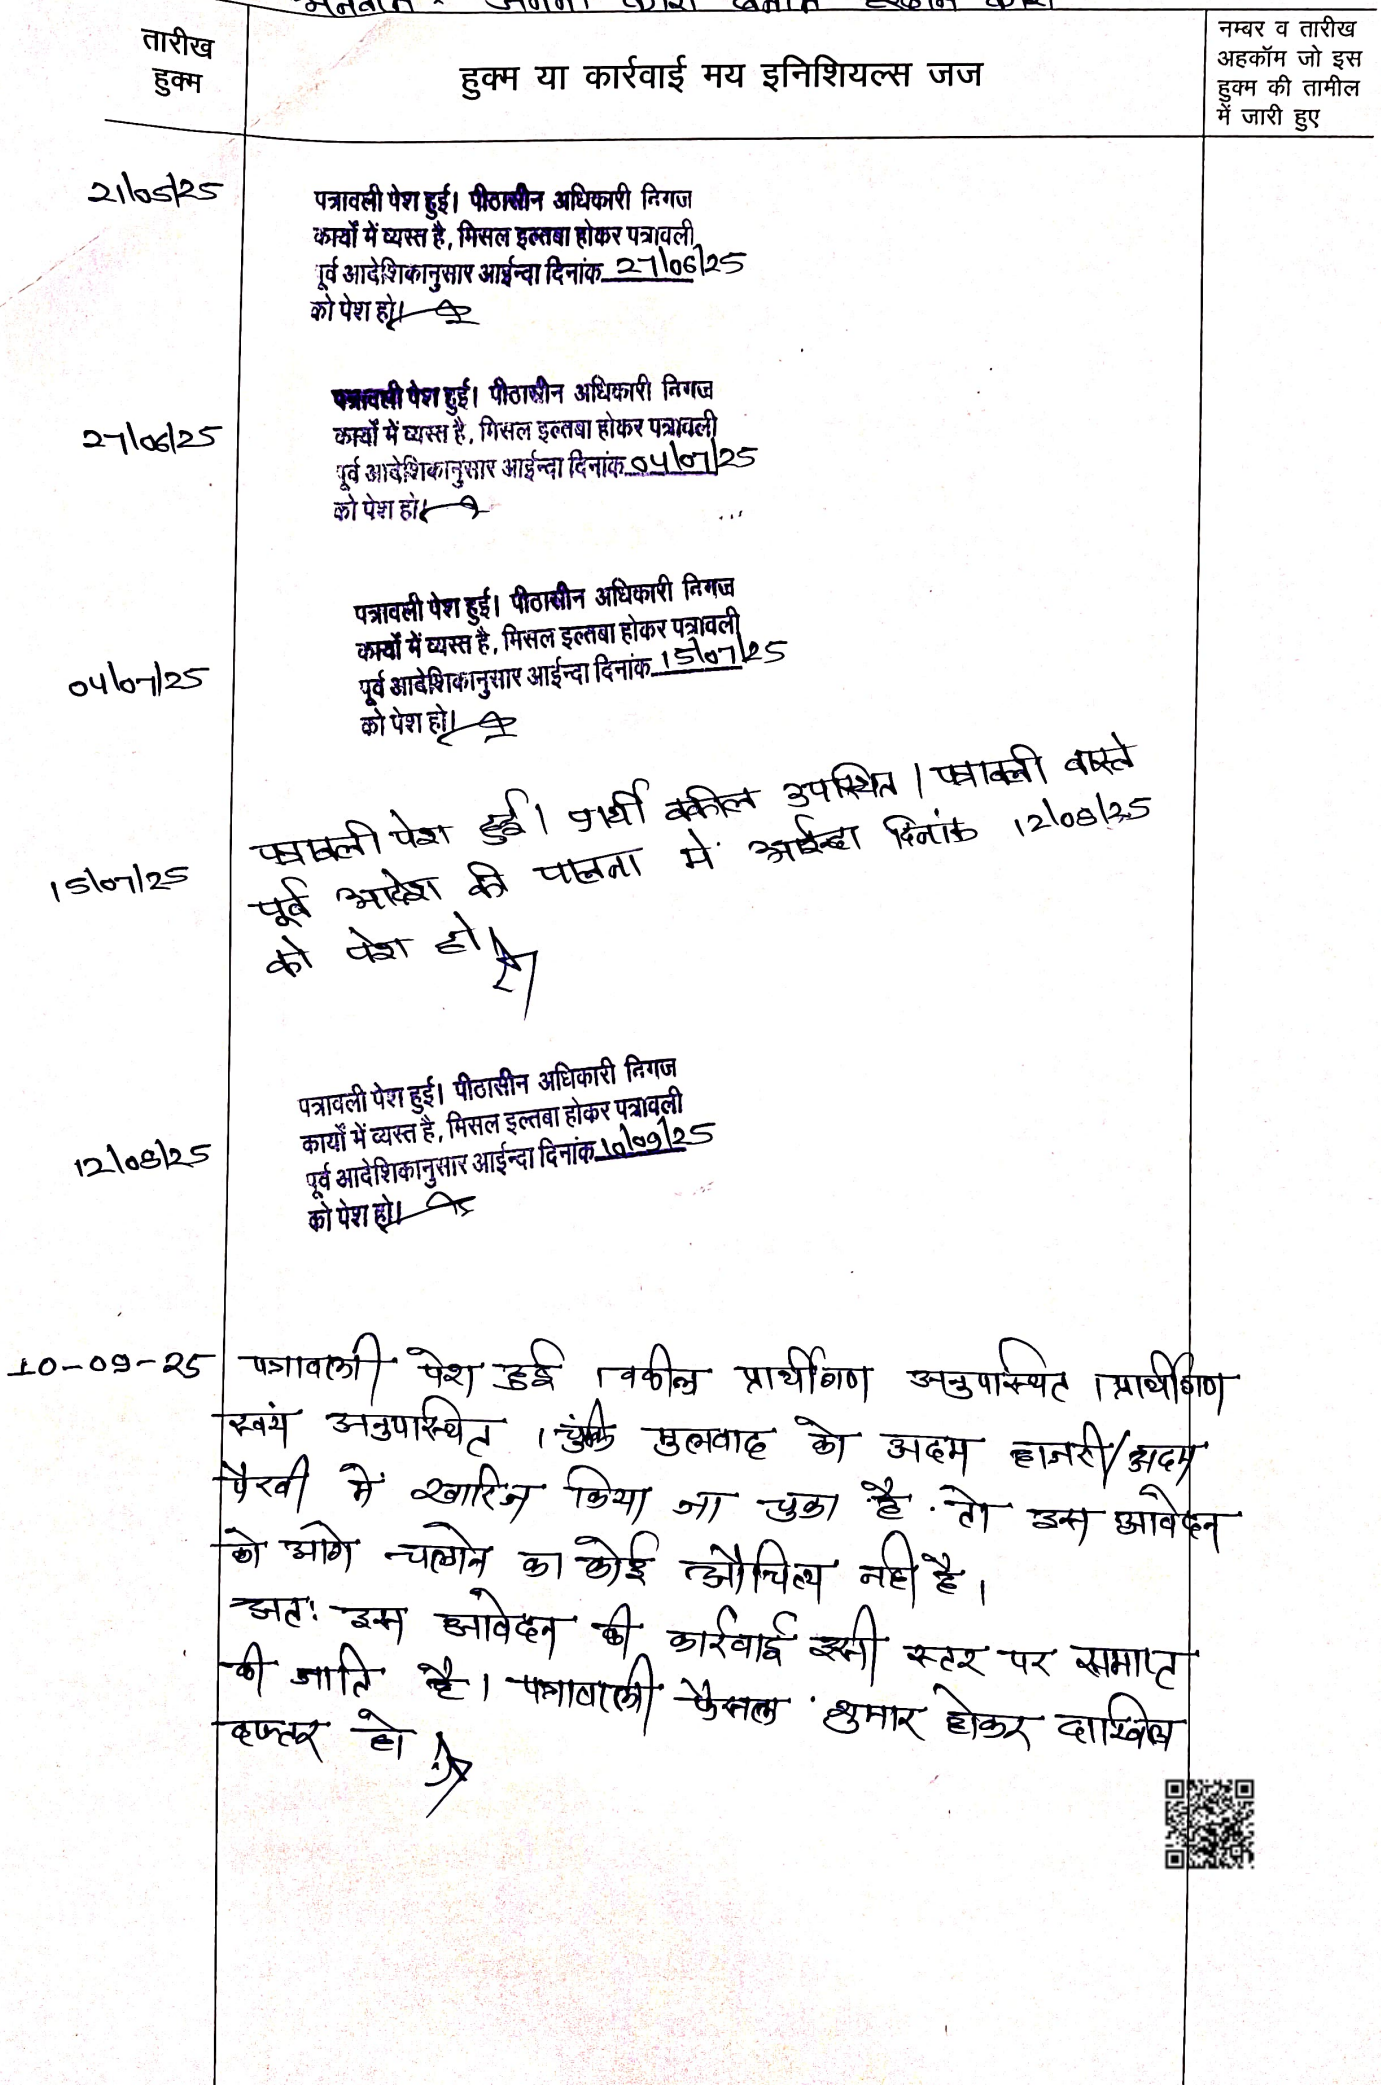 तारीख
हुक्म
हुक्म या कार्रवाई मय इनिशियल्स जज
नम्बर व तारीख
अहकॉम जो इस
हुक्म की तामील
में जारी हुए
21/05/25
पत्रावली पेश हुई। पीठासीन अधिकारी निगज
कार्यों में व्यस्त है, मिसल इल्तबा होकर पत्रावली
पूर्व आदेशिकानुसार आईन्दा दिनांक 27/06/25
को पेश हो।
27/06/25
पत्रावली पेश हुई। पीठासीन अधिकारी निगज
कार्यों में व्यस्त है, मिसल इल्तबा होकर पत्रावली
पूर्व आदेशिकानुसार आईन्दा दिनांक 04/07/25
को पेश हो।
04/07/25
पत्रावली पेश हुई। पीठासीन अधिकारी निगज
कार्यों में व्यस्त है, मिसल इल्तबा होकर पत्रावली
पूर्व आदेशिकानुसार आईन्दा दिनांक 15/07/25
को पेश हो।
15/07/25
पत्रावली पेश हुई। प्रार्थी वकील उपस्थित। पत्रावली वास्ते
पूर्व आदेश की पालना में आईन्दा दिनांक 12/08/25
को पेश हो।
12/08/25
पत्रावली पेश हुई। पीठासीन अधिकारी निगज
कार्यों में व्यस्त है, मिसल इल्तबा होकर पत्रावली
पूर्व आदेशिकानुसार आईन्दा दिनांक 10/09/25
को पेश हो।
10-09-25 पत्रावली पेश हुई । वकील प्रार्थीगण अनुपस्थित । प्रार्थीगण
स्वयं अनुपस्थित । चुंकि मुलवाद को अदम हाजरी/अदम
पैरवी में खारिज किया जा चुका है. तो इस आवेदन
को आगे चलाने का कोई औचित्य नही है।
अतः इस आवेदन की कार्रवाई इसी स्तर पर समाप्त
की जाति है। पत्रावली फैसल शुमार होकर दाखिल
दफ्तर हो